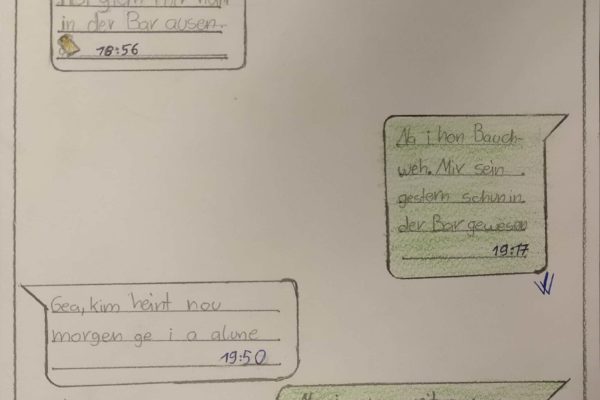 mir
in der Bar ausen.
18:56
Na i hon Bauch-
weh. Mir sein
gestern schun in
der Bar gewesen
19:17
Gea, kim heint nou
morgen ge i a alune
19:50